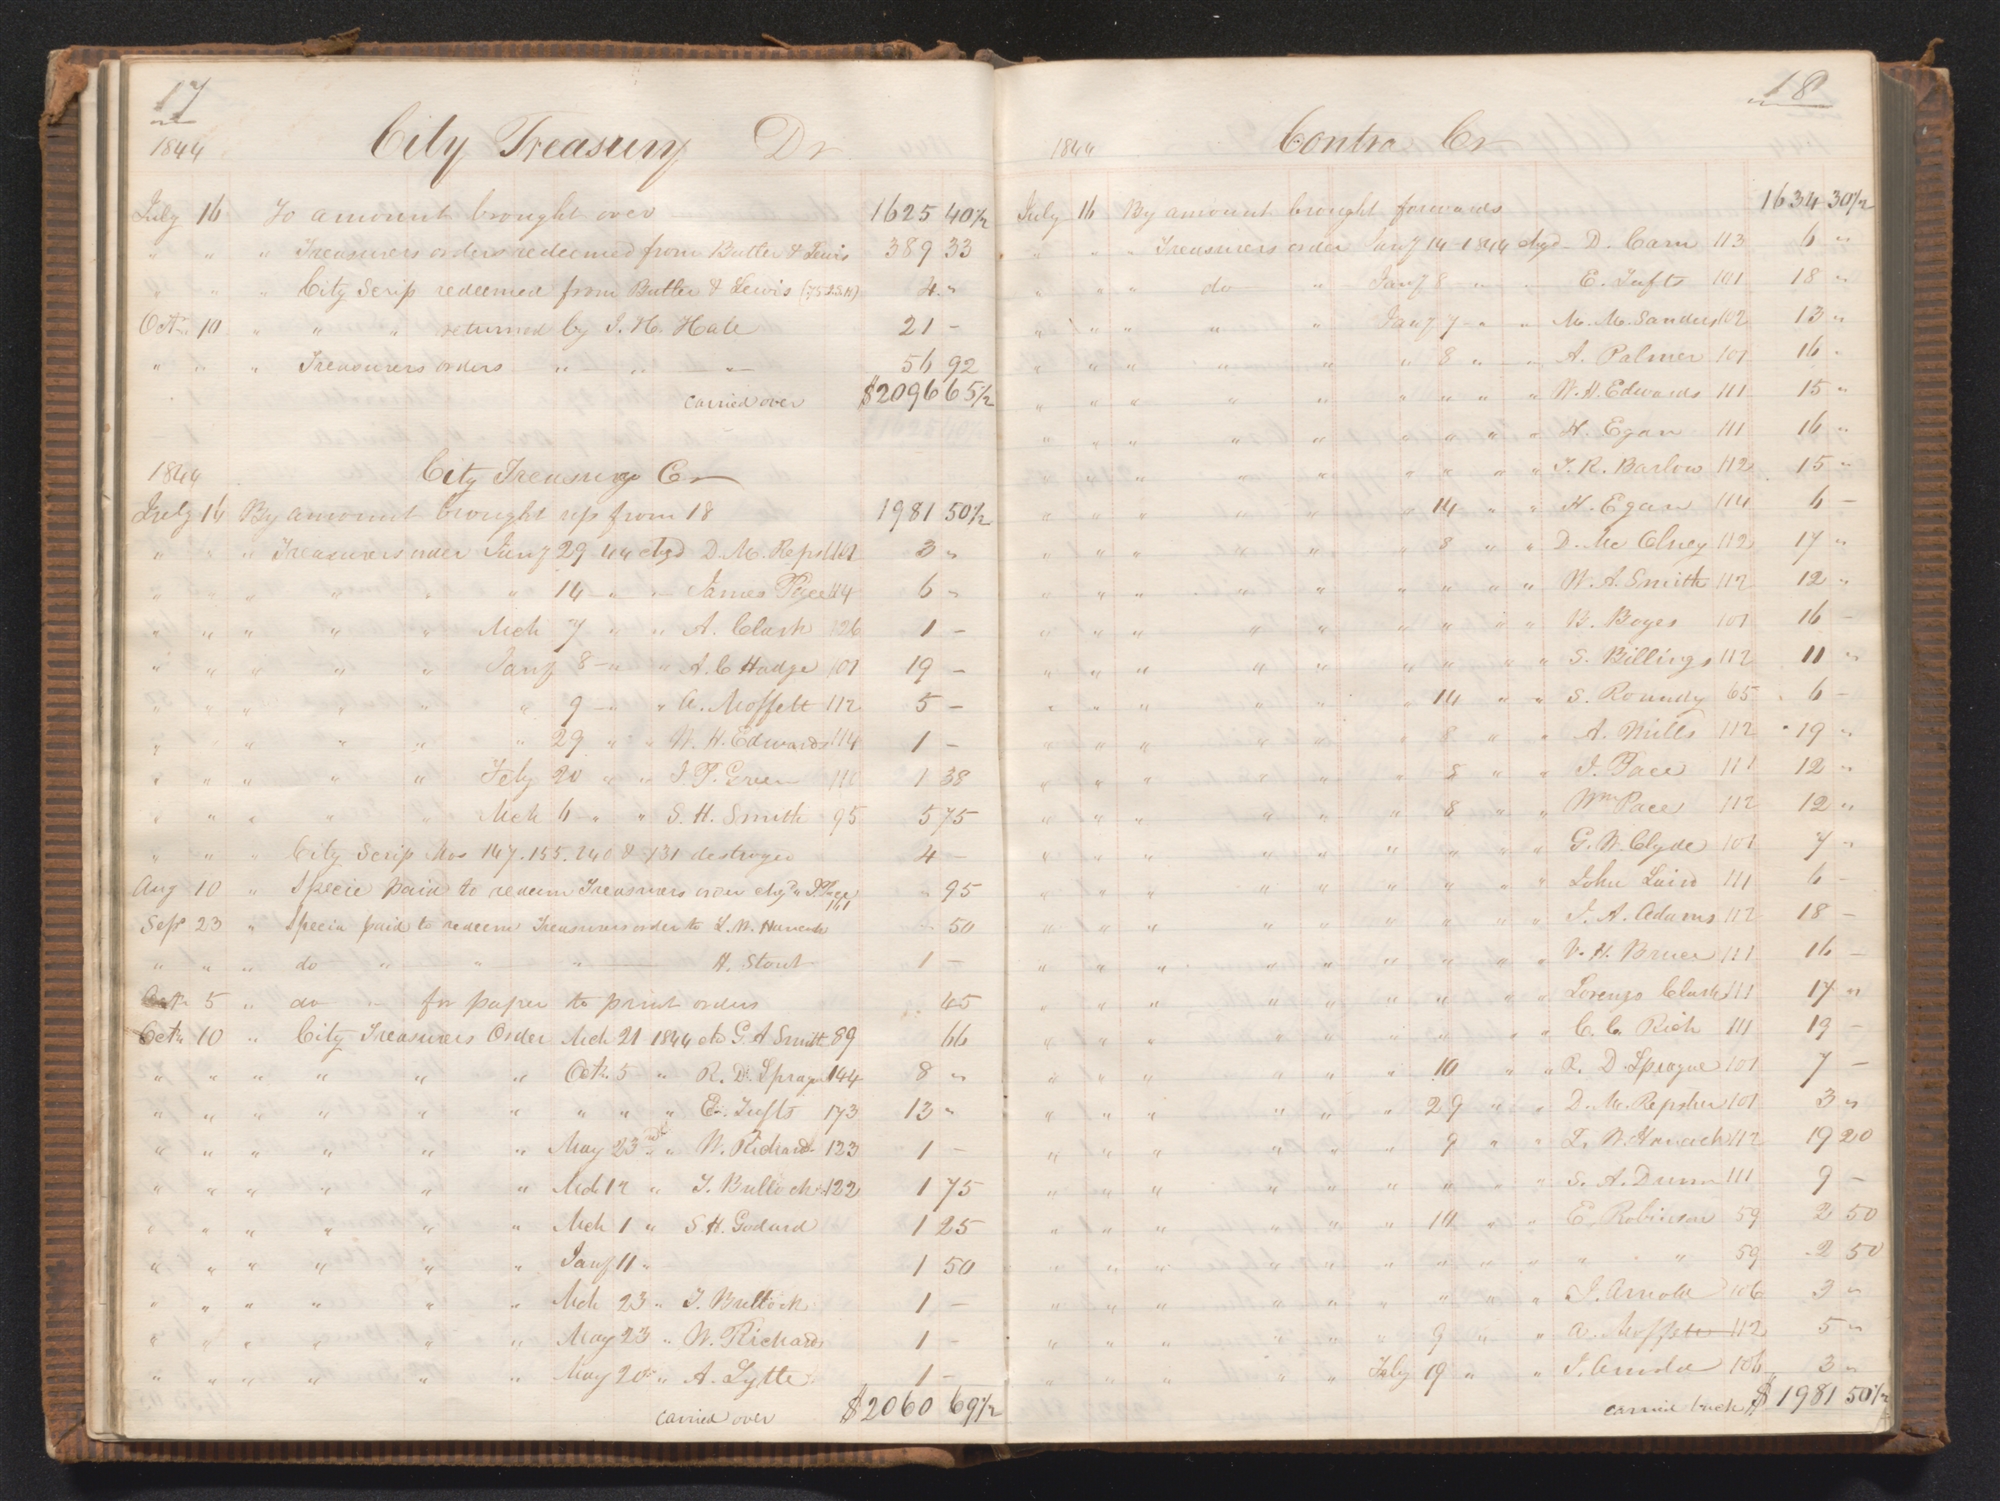 17
1844 City Treasury Dr
July 16 To amount brought over — 1625 40½
" " " Treasurers orders redeemed from Butler & Lewis 389 33
" " " City Scrip redeemed from Butler & Lewis 4 "
Octr 10 " " " returned by J. H. Hale 21 -
" " " Treasurers orders " — " — " — 56 92
carried over $2096 65½
1844 City Treasury Cr
July 16 By amount brought up from 18 1981 50½
" " " Treasurers order Jany 29 44 chgd D. M. Repsher 101 3 "
" " " " " " 14 " " James Pace 114 6 "
" " " " " Mch 7 " " A. Clark 126 1 -
" " " " " Jany 8 - " " A. C Hodge 101 19 -
" " " " " " 9 - " " A. Moffett 112 5 -
" " " " " " 29 " " W. H. Edwards 114 1 -
" " " " " Feby 20 " " J P. Green 1 38
" " " " " Mch 6 " " S. H. Smith 95 5 75
" " " City Scrip Nos 147. 155. 140 & 131 destroyed 4 -
Aug 10 " Specie paid to redeem Treasurers order chgd J Pace 111 " 95
Sept 23 " Specie paid to redeem Treasurers order to L. N. 50
" " " do " " " — H. Stout 1 -
Octr 5 " do " for paper to print orders 65
Octr 10 " City Treasurers Order Mch 21 1844 to G. A Smith 89 66
" " " " " " Octr 5 " R. D. Sprague 144 8 "
" " " " " " " " " " E. Tufts 173 13 "
" " " " " " May 23 " " W. Richards 123 1 -
" " " " " " Mch 12 " J. Bullock 122 1 75
" " " " " " Mch 1 " S. H. Godard 1 25
" " " " " " Jany 11 " 1 50
" " " " " " Mch 23 " J. Bullock 1 -
" " " " " " May 23 " W. Richards 1 -
" " " " " " May 20 " A. Lytte 1 -
carried over $2060 69½
18
1844 Contra Cr
July 16 By amount brought forwards 1634 30½
" " " Treasurers order Jany 14 1844 chgd D. Carn 113 6 "
" " " do " Jany 8 " " E. Tufts 101 18 "
" " " " " Jany 7 - " " M. M. Sanders 102 13 "
" " " " " " 8 " " A. Palmer 101 16 "
" " " " " " " " " W. H. Edwards 111 15 "
" " " " " " " " " H. Egan 111 16 "
" " " " " " " " " J. R. Barlow 112 15 "
" " " " " " 14 " " H. Egan 114 6 -
" " " " " " 8 " " D. Mc Olney 112 17 "
" " " " " " " " " W. A. Smith 112 12 "
" " " " " " " " " B. Boyes 101 16 -
" " " " " " " " " S. Billings 112 11 "
" " " " " " 14 " " S. Roundy 65 6 -
" " " " " " 8 " " A. Mills 112 19 "
" " " " " " 8 " " J. Pace 111 12 "
" " " " " " 8 " " Wm Pace 112 12 "
" " " " " " " " " G. W. Clyde 101 7 "
" " " " " " " " " John Laird 111 6 -
" " " " " " " " " J. A. Adams 112 18 -
" " " " " " " " " V. H. Bruce 111 16 -
" " " " " " " " " Lorenzo Clark 111 17 "
" " " " " " " " " C. C. Rich 111 19 -
" " " " " " 10 " " R. D Sprague 101 7 -
" " " " " " 29 " " D. M. Repsher 101 3 "
" " " " " " 9 " " 112 19 20
" " " " " " " " " S. A. Dunn 111 9 -
" " " " " " 10 " " E. Robinson 59 2 50
" " " " " " " " " " " " 59 2 50
" " " " " " " " " J. Arnold 106 3 "
" " " " " " 9 " " A. Moffett 112 5 "
" " " " " July 19 " " J. Arnold 106 3 "
carried back $1981 50½